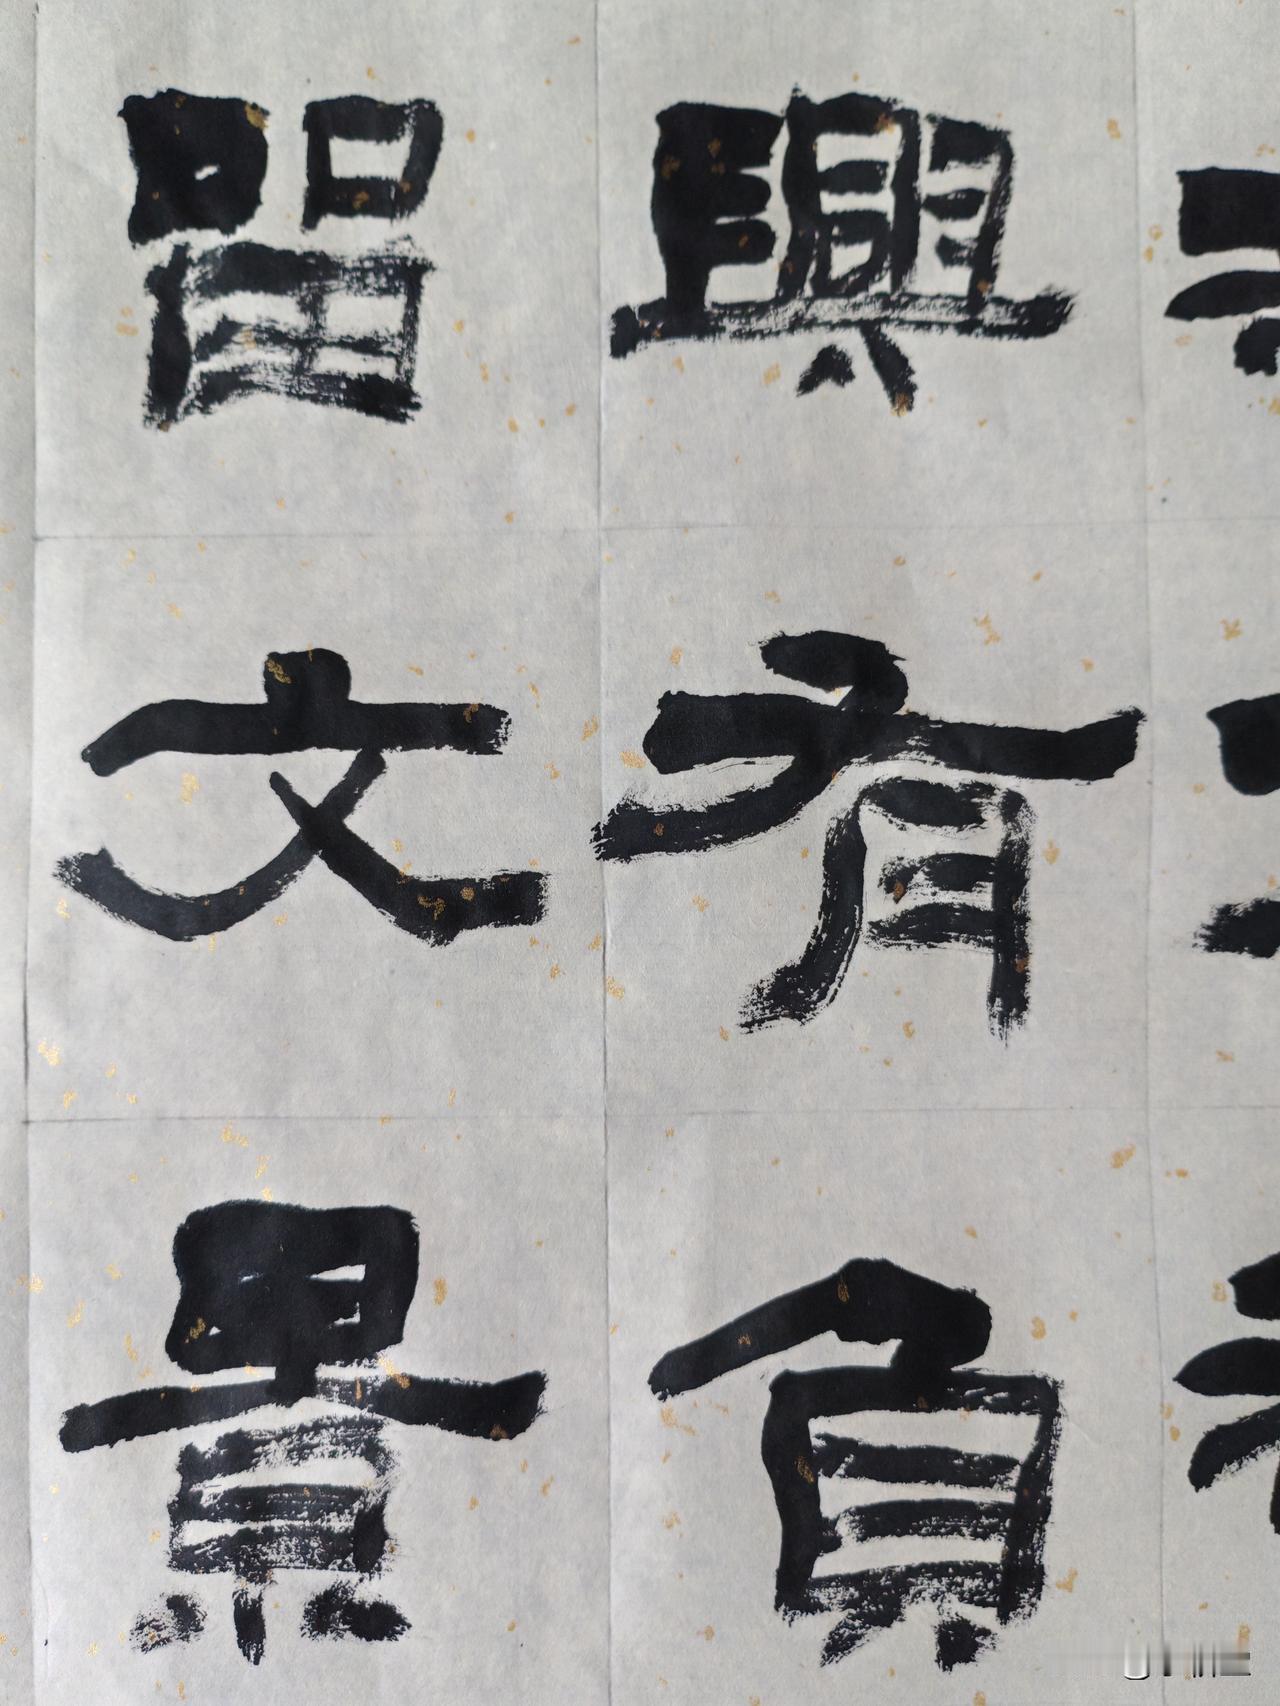 興有負
留文景